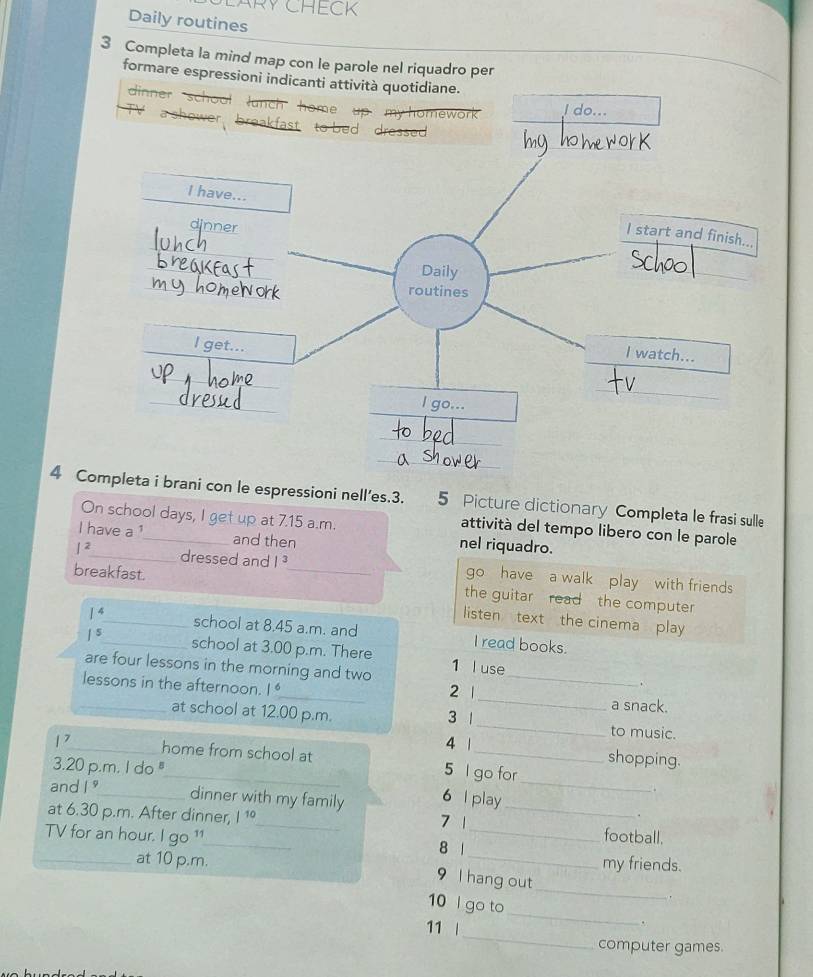 CHECK
Daily routines
3 Completa la mind map con le parole nel riquadro per
formare espressioni indicanti attività quotidiane.
dinner school lunch home up my homework
TV a shower breakfast to bed dressed
I do...
my homework
I have...
dinner
lunch
breakfast
my homework
I start and finish...
school
Daily
routines
I get...
up, home
dressed
I watch...
tv
I go...
to bed
a shower
4 Completa i brani con le espressioni nell'es.3.
On school days, I get up at 7.15 a.m.
I have a ¹________ and then
I ²________ dressed and I ³________
breakfast.
I ⁴________ school at 8.45 a.m. and
I ⁵________ school at 3.00 p.m. There
are four lessons in the morning and two
lessons in the afternoon. I ⁶________
________ at school at 12.00 p.m.
I ⁷________ home from school at
3.20 p.m. I do ⁸________
and I ⁹________ dinner with my family
at 6.30 p.m. After dinner, I ¹⁰________
TV for an hour. I go ¹¹________
________ at 10 p.m.
5 Picture dictionary Completa le frasi sulle
attività del tempo libero con le parole
nel riquadro.
go have a walk play with friends
the guitar read the computer
listen text the cinema play
I read books.
1 I use ________.
2 I ________ a snack.
3 I ________ to music.
4 I ________ shopping.
5 I go for ________.
6 I play ________.
7 I ________ football.
8 I ________ my friends.
9 I hang out ________.
10 I go to ________.
11 I ________ computer games.